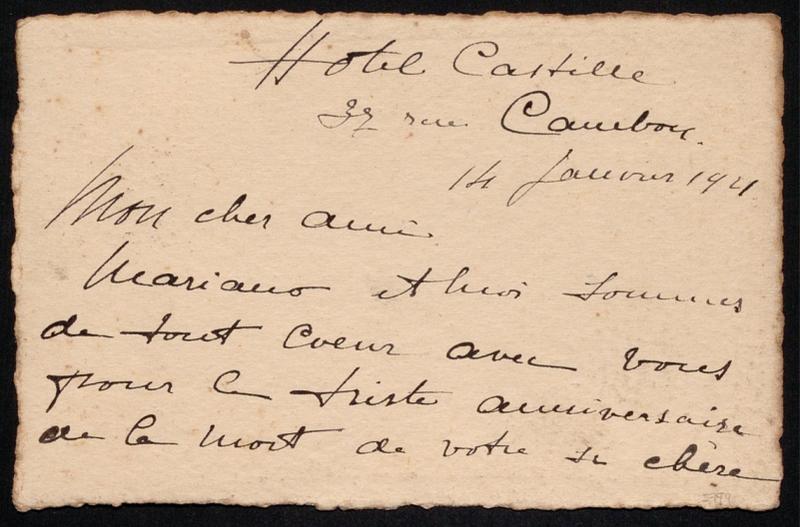 Hotel Castille
37 rue Cambon.
14 Janvier 1921
Mon cher ami.
Mariano et moi sommes
de tout coeur avec vous
pour le triste anniversaire
de la mort de votre si chère